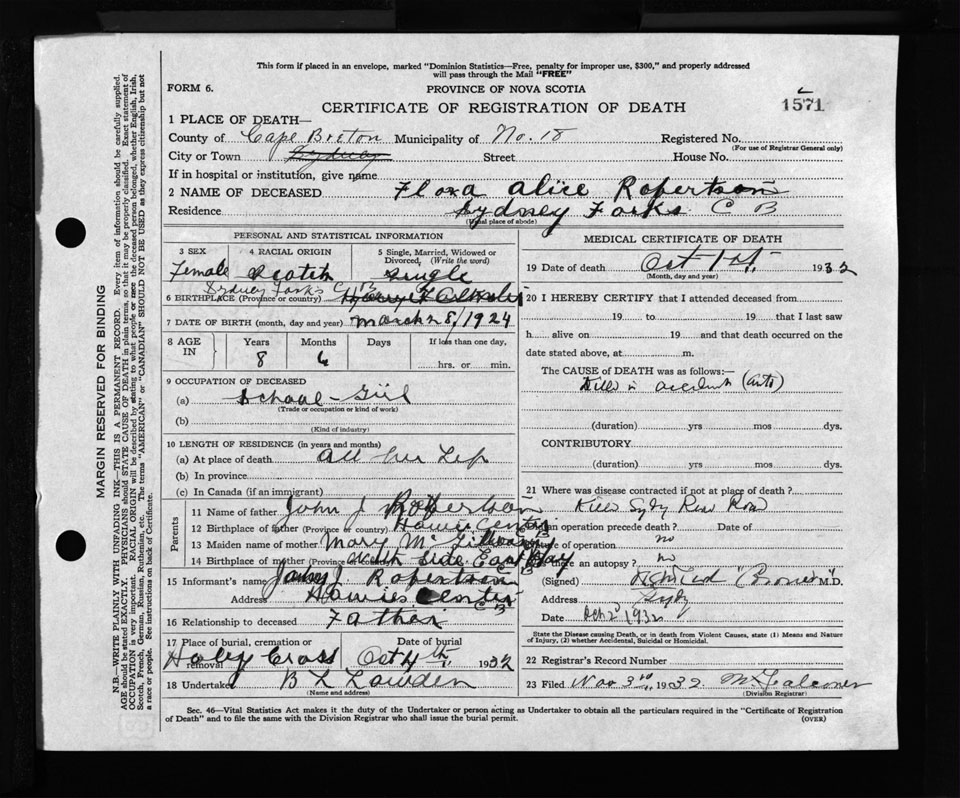 This form if placed in an envelope, marked "Dominion Statistics—Free, penalty for improper use, $300," and properly addressed
will pass through the Mail "FREE"
FORM 6.
PROVINCE OF NOVA SCOTIA
1571
CERTIFICATE OF REGISTRATION OF DEATH
1 PLACE OF DEATH—
County of Cape Breton Municipality of No. 18 Registered No.
(For use of Registrar General only)
City or Town Sydney Street House No.
If in hospital or institution, give name
2 NAME OF DECEASED Flora Alice Robertson
Residence Sydney Forks C B
(Usual place of abode)
PERSONAL AND STATISTICAL INFORMATION
3 SEX 4 RACIAL ORIGIN 5 Single, Married, Widowed or Divorced, (Write the word)
Female Scotch Single
Sydney Forks C B
6 BIRTHPLACE (Province or country)
7 DATE OF BIRTH (month, day and year) March 28, 1924
8 AGE IN Years Months Days If less than one day,
8 6 hrs. or min.
9 OCCUPATION OF DECEASED
(a) School-Girl
(Trade or occupation or kind of work)
(b)
(Kind of industry)
10 LENGTH OF RESIDENCE (in years and months)
(a) At place of death All her Life
(b) In province
(c) In Canada (if an immigrant)
Parents
11 Name of father John J Robertson
12 Birthplace of father (Province or country) Howie Center C B
13 Maiden name of mother Mary
14 Birthplace of mother (Province or country) North Side East Bay C B
15 Informant's name J Robertson
Address Howies Center C B
16 Relationship to deceased Father
17 Place of burial, cremation or removal Date of burial
Holey Cross Oct 4th, 1932
18 Undertaker B L Lowden
(Name and address)
MEDICAL CERTIFICATE OF DEATH
19 Date of death Oct 1st, 1932
(Month, day and year)
20 I HEREBY CERTIFY that I attended deceased from
19 to 19 that I last saw
h alive on 19 and that death occurred on the
date stated above, at m.
The CAUSE OF DEATH was as follows:—
Killed in accident (auto)
(duration) yrs mos dys.
CONTRIBUTORY
(duration) yrs mos dys.
21 Where was disease contracted if not at place of death?
Did an operation precede death? Date of
no
Nature of operation
Was there an autopsy? no
(Signed) "Coroner" M.D.
Address Sydy
Date Oct 2 1932
State the Disease causing Death, or in death from Violent Causes, state (1) Means and Nature
of Injury, (2) whether Accidental, Suicidal or Homicidal.
22 Registrar's Record Number
23 Filed Nov 3rd, 1932. McFalconer
(Division Registrar)
Sec. 46—Vital Statistics Act makes it the duty of the Undertaker or person acting as Undertaker to obtain all the particulars required in the "Certificate of Registration
of Death" and to file the same with the Division Registrar who shall issue the burial permit.
(OVER)
MARGIN RESERVED FOR BINDING
N.B.—WRITE PLAINLY WITH UNFADING INK—THIS IS A PERMANENT RECORD. Every item of information should be carefully supplied.
AGE should be stated EXACTLY. PHYSICIANS should STATE CAUSE OF DEATH in plain terms, so that it may be properly classified. Exact statement of
OCCUPATION is very important. RACIAL ORIGIN will be described by stating to what people or race the deceased person belonged, whether English, Irish,
Scotch, French, German, Russian, Ruthenian, etc. The terms "AMERICAN" or "CANADIAN" SHOULD NOT BE USED as they express citizenship but not
a race or people. See instructions on back of Certificate.